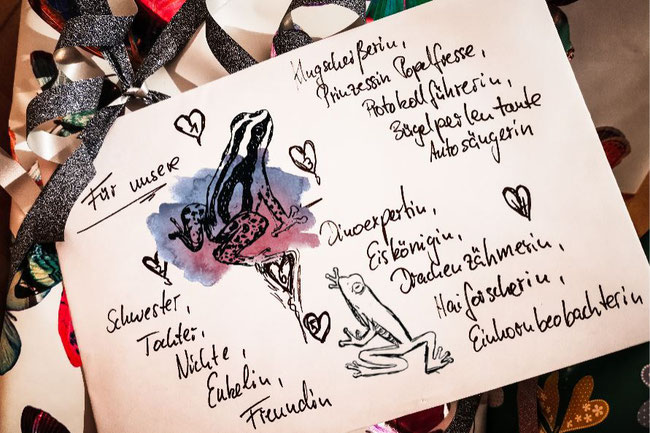 Für unsere
Schwester,
Tochter,
Nichte,
Enkelin,
Freundin
Klugscheißerin,
Prinzessin Popelfresse,
Protokollführerin,
Bügelperlentante
Autosängerin
Dinoexpertin,
Eiskönigin,
Drachenzähmerin,
Haiforscherin,
Einhornbeobachterin